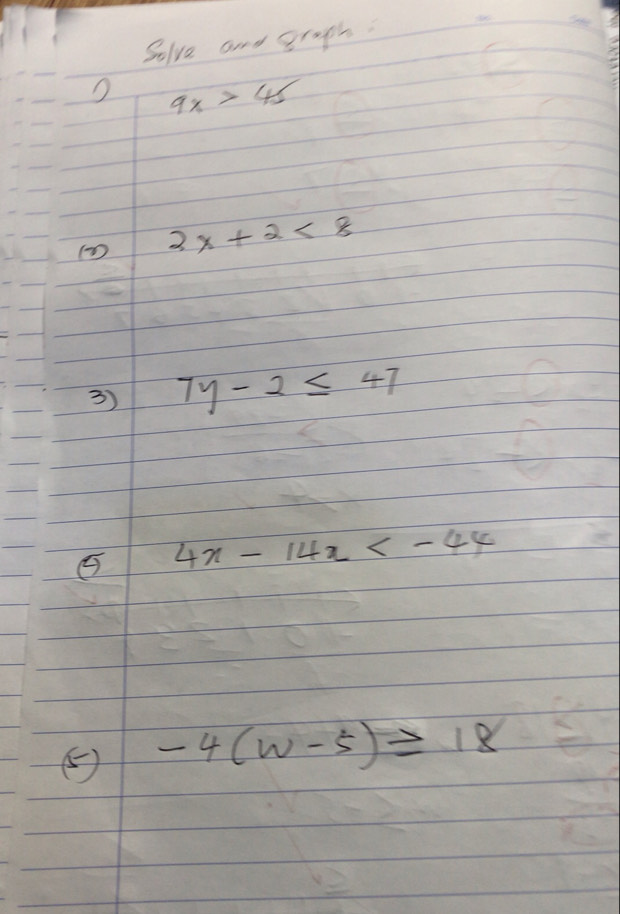 Solve and graph:
1) 9x > 45
(2) 2x + 2 < 8
3) 7y - 2 ≤ 47
(4) 4x - 14x < -44
(5) -4(w - 5) ≥ 18